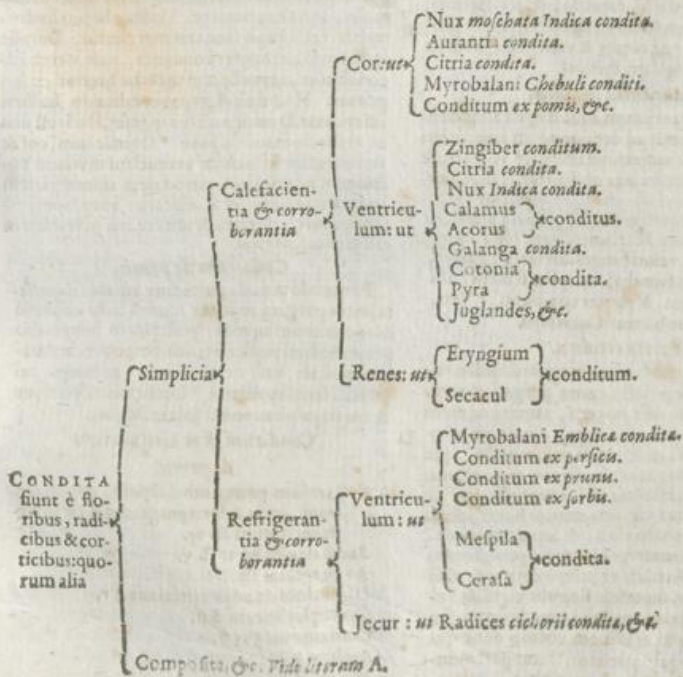 CONDITA
fiunt è flo-
ribus, radi-
cibus & cor-
ticibus: quo-
rum alia
Simplicia
Calefacien-
tia & corro-
borantia
Cor: ut
Nux moſchata Indica condita.
Aurantia condita.
Citria condita.
Myrobalani Chebuli conditi.
Conditum ex pomis, &c.
Ventricu-
lum: ut
Zingiber conditum.
Citria condita.
Nux Indica condita.
Calamus
Acorus
conditus.
Galanga condita.
Cotonia
Pyra
condita.
Juglandes, &c.
Renes: ut
Eryngium
Secacul
conditum.
Refrigeran-
tia & corro-
borantia
Ventricu-
lum: ut
Myrobalani Emblicæ condita.
Conditum ex perſicis.
Conditum ex prunis.
Conditum ex ſorbis.
Meſpila
Ceraſa
condita.
Jecur: ut Radices cichorii condita, &c.
Compoſita, &c. Vide literam A.